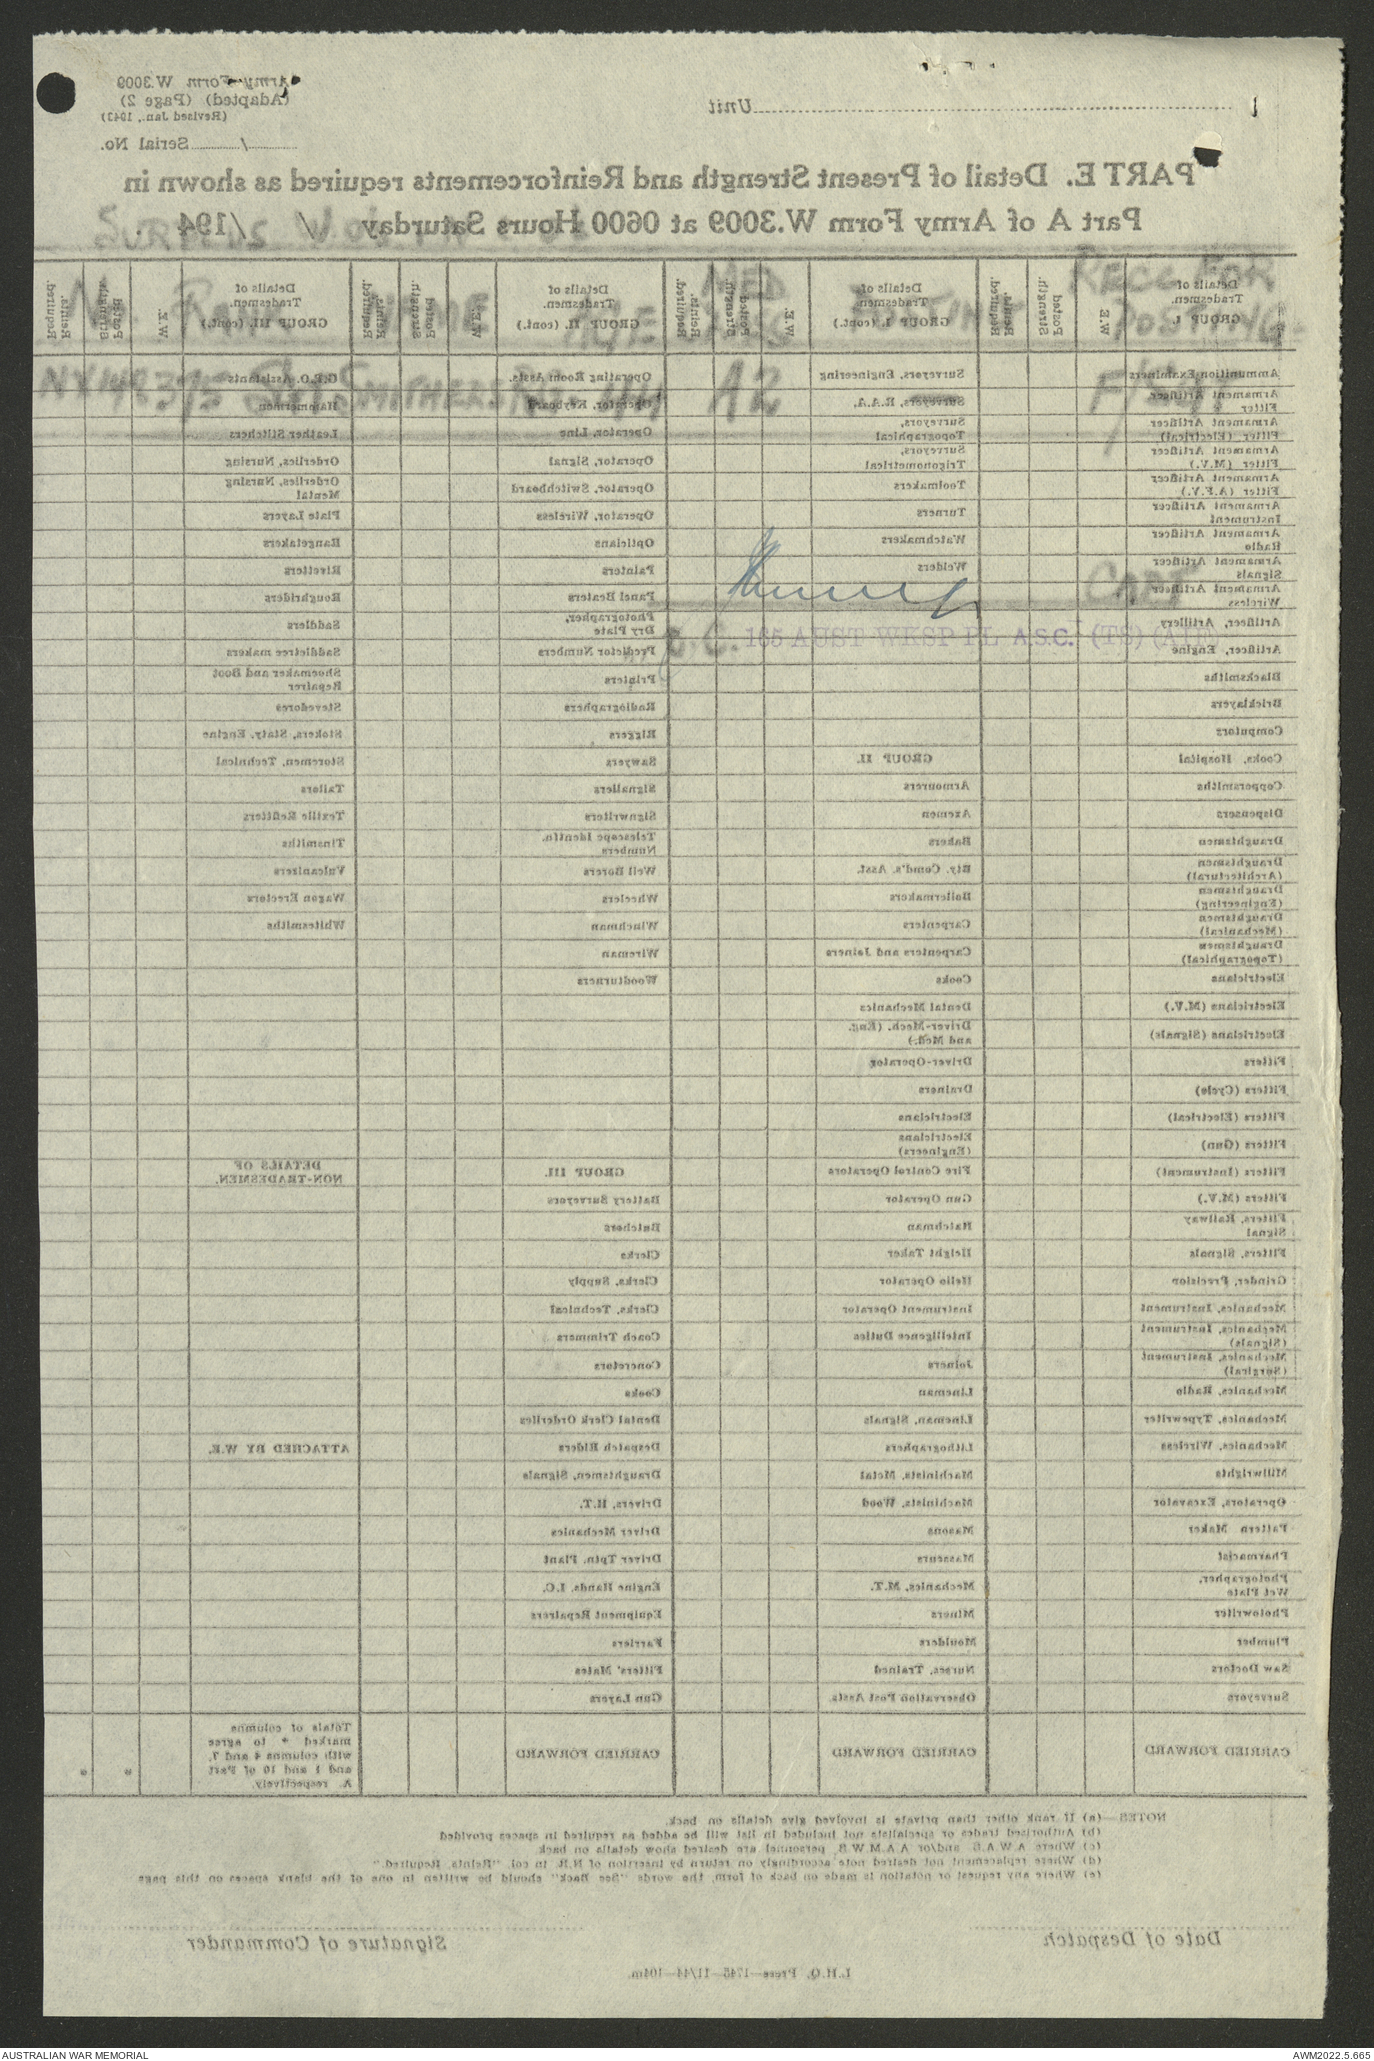 Army Form W.3009
(Adapted) (Page 2)
(Revised Jan., 1943)
Serial No. ........../..........
Unit
PART E. Detail of Present Strength and Reinforcements required as shown in
Part A of Army Form W.3009 at 0600 Hours Saturday / /194 .
SURPLUS W.O's
No. RANK NAME AGE MED CLASS POSTING RECC FOR POSTING
NX149375 SGT SMITHERS R.J. 44 A2 F/SGT
CAPT
O.C. 165 AUST WKSP PL A.S.C. (TS) (AIF)
Details of
Tradesmen.
GROUP I.
W.E.
Posted
Strength.
Reinfs.
Required.
Ammunition Examiners
Armament Artificer
Fitter
Armament Artificer
Fitter (Electrical)
Armament Artificer
Fitter (M.V.)
Armament Artificer
Fitter (A.F.V.)
Armament Artificer
Instrument
Armament Artificer
Radio
Armament Artificer
Signals
Armament Artificer
Wireless
Artificer, Artillery
Artificer, Engine
Blacksmiths
Bricklayers
Computors
Cooks, Hospital
Coppersmiths
Dispensers
Draughtsmen
Draughtsmen
(Architectural)
Draughtsmen
(Engineering)
Draughtsmen
(Mechanical)
Draughtsmen
(Topographical)
Electricians
Electricians (M.V.)
Electricians (Signals)
Fitters
Fitters (Cycle)
Fitters (Electrical)
Fitters (Gun)
Fitters (Instrument)
Fitters (M.V.)
Fitters, Railway
Signal
Fitters, Signals
Grinder, Precision
Mechanics, Instrument
Mechanics, Instrument
(Signals)
Mechanics, Instrument
(Surgical)
Mechanics, Radio
Mechanics, Typewriter
Mechanics, Wireless
Millwrights
Operators, Excavator
Pattern Maker
Pharmacist
Photographer,
Wet Plate
Photowriter
Plumber
Saw Doctors
Surveyors
CARRIED FORWARD
Details of
Tradesmen.
GROUP I (cont.)
W.E.
Posted
Strength.
Reinfs.
Required.
Surveyors, Engineering
Surveyors, R.A.A.
Surveyors,
Topographical
Surveyors,
Trigonometrical
Toolmakers
Turners
Watchmakers
Welders
GROUP II.
Armourers
Axemen
Bakers
Bty. Comd's. Asst.
Boilermakers
Carpenters
Carpenters and Joiners
Cooks
Dental Mechanics
Driver-Mech. (Eng.
and Med.)
Driver-Operator
Drainers
Electricians
Electricians
(Engineers)
Fire Control Operators
Gun Operator
Hatchman
Height Taker
Helio Operator
Instrument Operator
Intelligence Duties
Joiners
Lineman
Lineman, Signals
Lithographers
Machinists, Metal
Machinists, Wood
Masons
Masseurs
Mechanics, M.T.
Miners
Moulders
Nurses, Trained
Observation Post Assts.
CARRIED FORWARD
Details of
Tradesmen.
GROUP II. (cont.)
W.E.
Posted
Strength.
Reinfs.
Required.
Operating Room Assts.
Operator, Keyboard
Operator, Line
Operator, Signal
Operator, Switchboard
Operator, Wireless
Opticians
Painters
Panel Beaters
Photographer,
Dry Plate
Predictor Numbers
Printers
Radiographers
Riggers
Sawyers
Signallers
Signwriters
Telescope Identfn.
Numbers
Well Borers
Wheelers
Winchman
Wireman
Woodturners
GROUP III.
Battery Surveyors
Butchers
Clerks
Clerks, Supply
Clerks, Technical
Coach Trimmers
Concretors
Cooks
Dental Clerk Orderlies
Despatch Riders
Draughtsmen, Signals
Drivers, H.T.
Driver Mechanics
Driver Tptn. Plant
Engine Hands, I.C.
Equipment Repairers
Farriers
Fitters' Mates
Gun Layers
CARRIED FORWARD
Details of
Tradesmen.
GROUP III. (cont.)
W.E.
Posted
Strength.
Reinfs.
Required.
G.P.O. Assistants
Hammermen
Leather Stitchers
Orderlies, Nursing
Orderlies, Nursing
Mental
Plate Layers
Rangetakers
Rivetters
Roughriders
Saddlers
Saddletree makers
Shoemaker and Boot
Repairer
Stevedores
Stokers, Staty. Engine
Storemen, Technical
Tailors
Textile Refitters
Tinsmiths
Vulcanizers
Wagon Erectors
Whitesmiths
DETAILS OF
NON-TRADESMEN.
ATTACHED BY W.E.
Totals of columns
marked * to agree
with columns 4 and 7,
and 1 and 10 of Part
A. respectively.
* *
NOTES—(a) If rank other than private is involved give details on back.
(b) Authorised trades or specialists not included in list will be added as required in spaces provided
(c) Where A.W.A.S. and/or A.A.M.W.S. personnel are desired show details on back
(d) Where replacement not desired note accordingly on return by insertion of N.R. in col. "Reinfs. Required."
(e) Where any request or notation is made on back of form, the words "See Back" should be written in one of the blank spaces on this page
Date of Despatch
Signature of Commander
L.H.Q. Press—1745—11/44—104m.
AUSTRALIAN WAR MEMORIAL
AWM2022.5.665